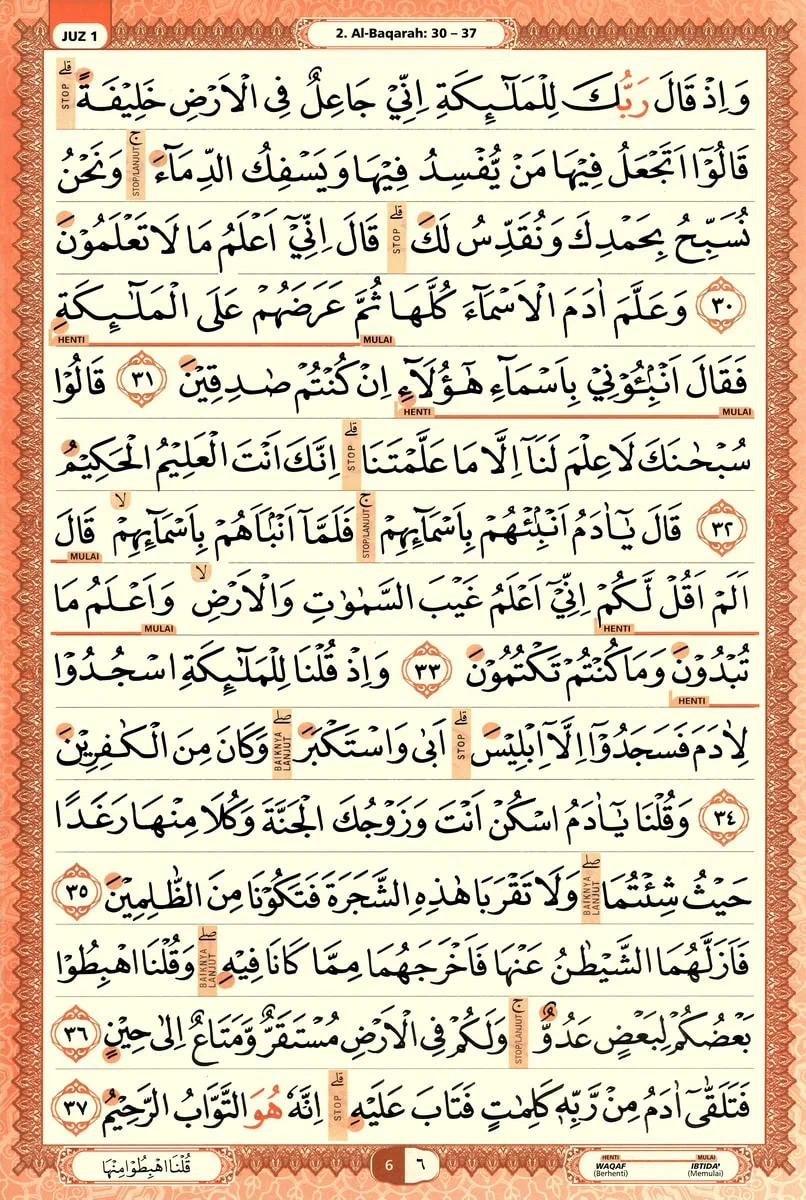 JUZ 1
2. Al-Baqarah: 30 – 37
وَاِذْ قَالَ رَبُّكَ لِلْمَلٰۤىِٕكَةِ اِنِّيْ جَاعِلٌ فِى الْاَرْضِ خَلِيْفَةًۗ STOP
قَالُوْٓا اَتَجْعَلُ فِيْهَا مَنْ يُّفْسِدُ فِيْهَا وَيَسْفِكُ الدِّمَاۤءَۚ STOP/LANJUT وَنَحْنُ
نُسَبِّحُ بِحَمْدِكَ وَنُقَدِّسُ لَكَۗ STOP قَالَ اِنِّيْٓ اَعْلَمُ مَا لَا تَعْلَمُوْنَ
٣٠ وَعَلَّمَ اٰدَمَ الْاَسْمَاۤءَ كُلَّهَا ثُمَّ عَرَضَهُمْ عَلَى الْمَلٰۤىِٕكَةِ
MULAI HENTI
فَقَالَ اَنْۢبِـُٔوْنِيْ بِاَسْمَاۤءِ هٰٓؤُلَاۤءِ اِنْ كُنْتُمْ صٰدِقِيْنَ ٣١ قَالُوْا
MULAI HENTI
سُبْحٰنَكَ لَا عِلْمَ لَنَآ اِلَّا مَا عَلَّمْتَنَاۗ STOP اِنَّكَ اَنْتَ الْعَلِيْمُ الْحَكِيْمُ
٣٢ قَالَ يٰٓاٰدَمُ اَنْۢبِئْهُمْ بِاَسْمَاۤىِٕهِمْۚ STOP/LANJUT فَلَمَّآ اَنْۢبَاَهُمْ بِاَسْمَاۤىِٕهِمْۙ قَالَ
MULAI
اَلَمْ اَقُلْ لَّكُمْ اِنِّيْٓ اَعْلَمُ غَيْبَ السَّمٰوٰتِ وَالْاَرْضِۙ وَاَعْلَمُ مَا
HENTI MULAI
تُبْدُوْنَ وَمَا كُنْتُمْ تَكْتُمُوْنَ ٣٣ وَاِذْ قُلْنَا لِلْمَلٰۤىِٕكَةِ اسْجُدُوْا
HENTI
لِاٰدَمَ فَسَجَدُوْٓا اِلَّآ اِبْلِيْسَۗ STOP اَبٰى وَاسْتَكْبَرَۖ BAIKNYA LANJUT وَكَانَ مِنَ الْكٰفِرِيْنَ
٣٤ وَقُلْنَا يٰٓاٰدَمُ اسْكُنْ اَنْتَ وَزَوْجُكَ الْجَنَّةَ وَكُلَا مِنْهَا رَغَدًا
حَيْثُ شِئْتُمَاۖ BAIKNYA LANJUT وَلَا تَقْرَبَا هٰذِهِ الشَّجَرَةَ فَتَكُوْنَا مِنَ الظّٰلِمِيْنَ ٣٥
فَاَزَلَّهُمَا الشَّيْطٰنُ عَنْهَا فَاَخْرَجَهُمَا مِمَّا كَانَا فِيْهِۖ BAIKNYA LANJUT وَقُلْنَا اهْبِطُوْا
بَعْضُكُمْ لِبَعْضٍ عَدُوٌّۚ STOP/LANJUT وَلَكُمْ فِى الْاَرْضِ مُسْتَقَرٌّ وَّمَتَاعٌ اِلٰى حِيْنٍ ٣٦
فَتَلَقّٰٓى اٰدَمُ مِنْ رَّبِّهٖ كَلِمٰتٍ فَتَابَ عَلَيْهِۗ STOP اِنَّهٗ هُوَ التَّوَّابُ الرَّحِيْمُ ٣٧
قُلْنَا اهْبِطُوْا مِنْهَا
6 ٦
HENTI MULAI
WAQAF IBTIDA'
(Berhenti) (Memulai)